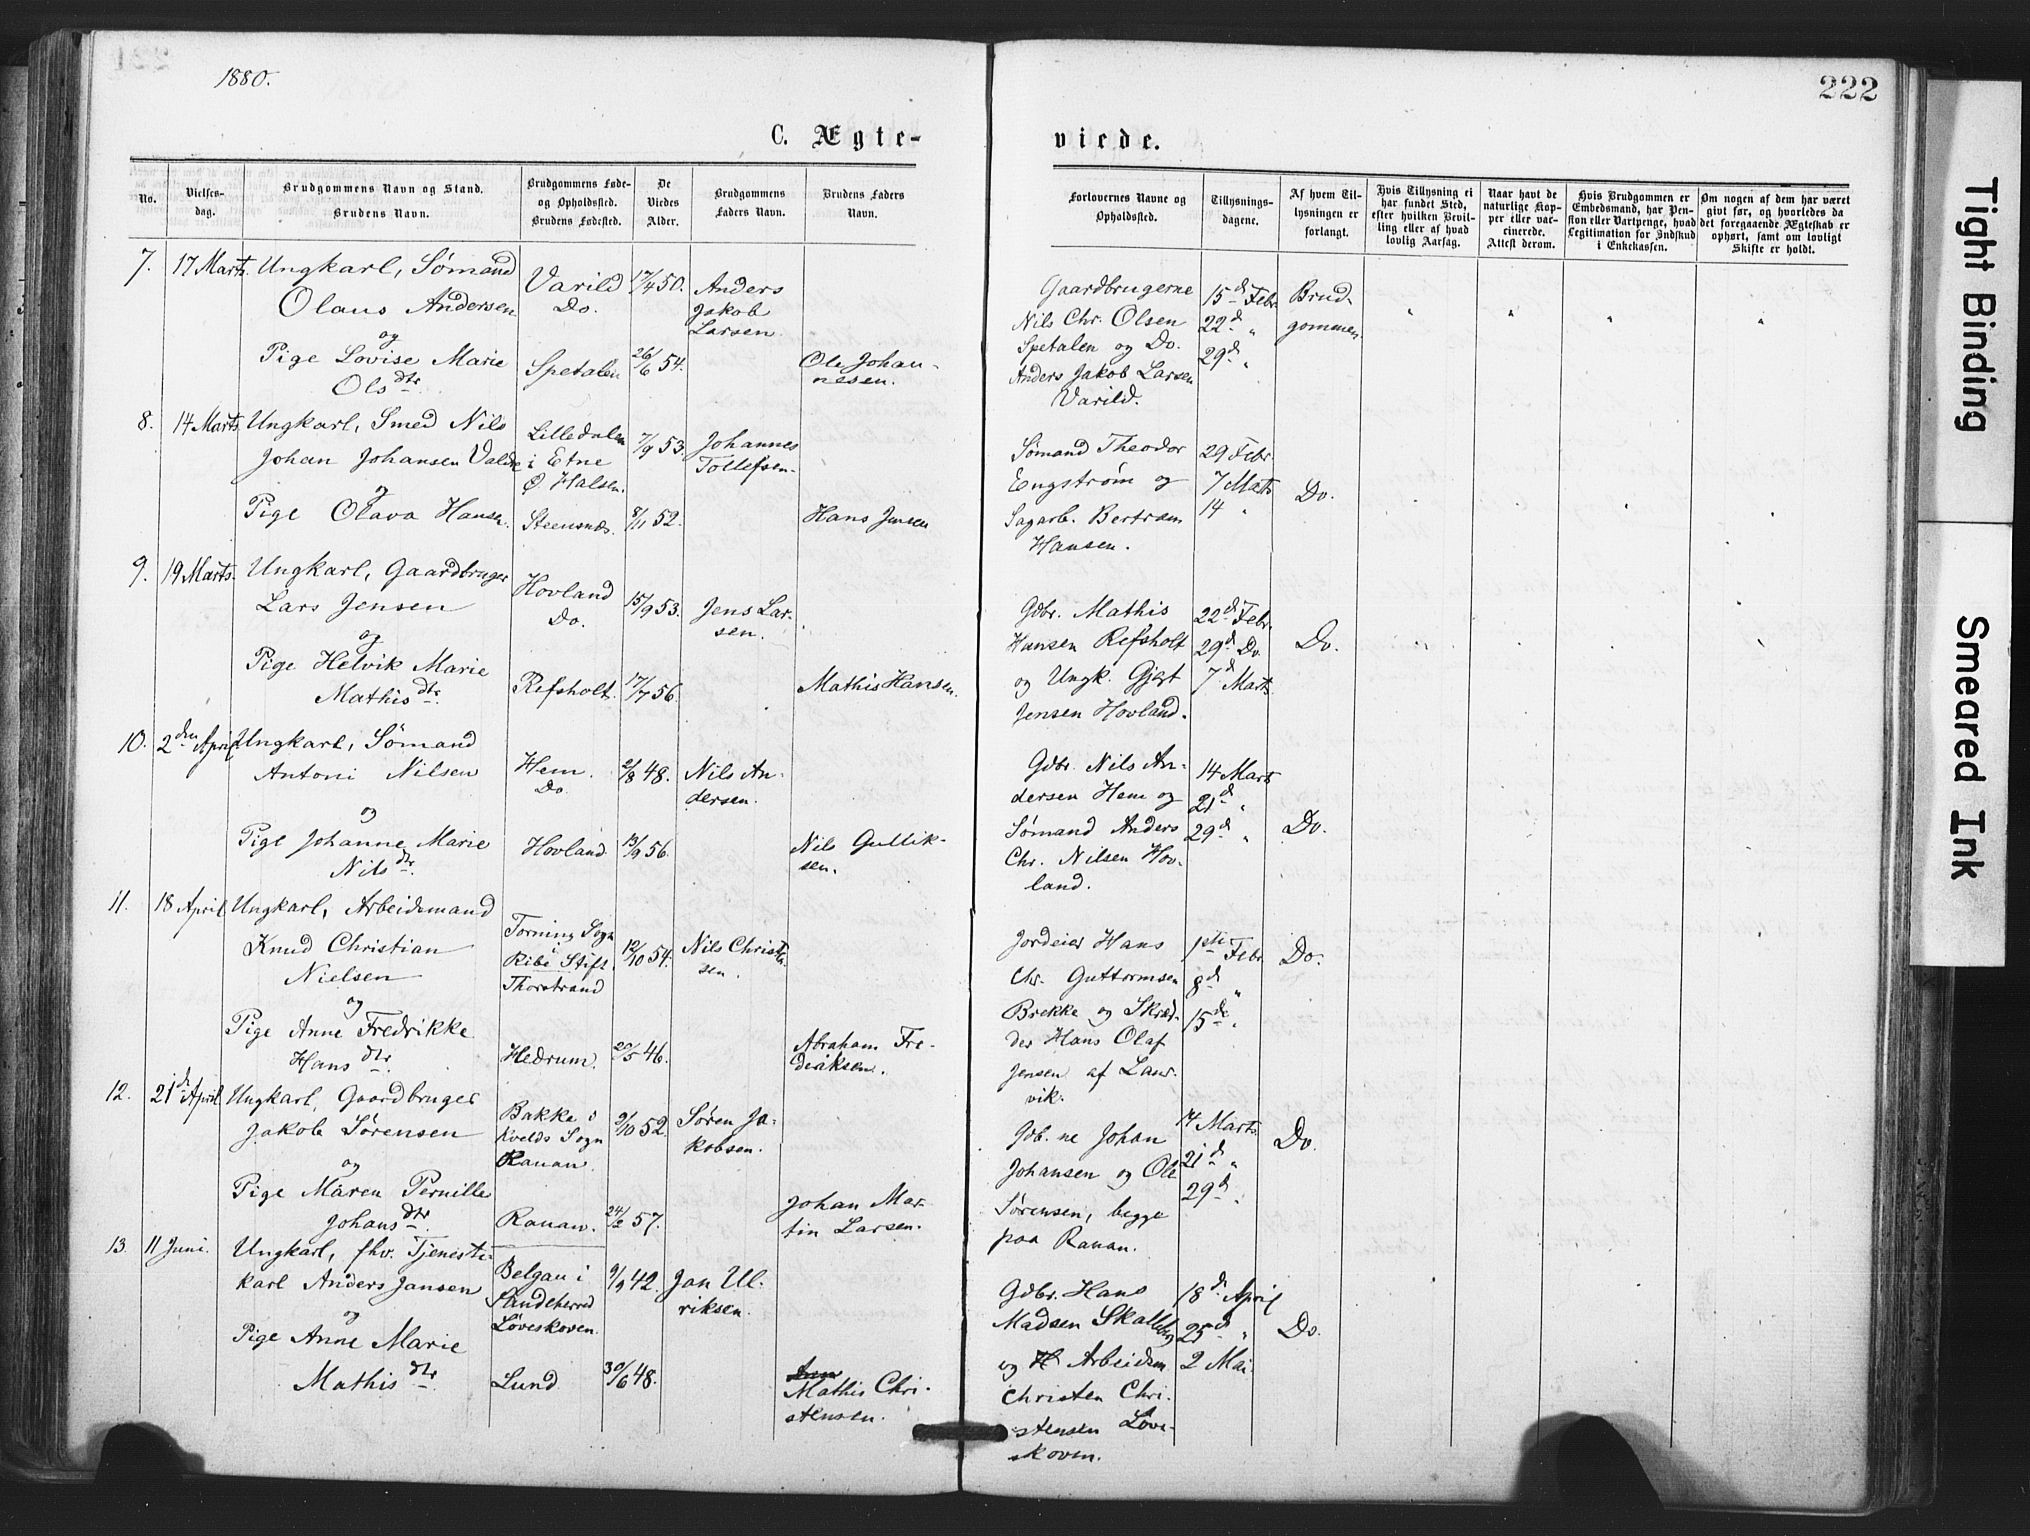 1880.
222
C. Ægte-
viede.
No.
Vielses-
dag.
Brudgommens Navn og Stand.
Brudens Navn.
Brudgommens Føde-
og Opholdssted.
Brudens Fødested.
De
Viedes
Alder.
Brudgommens
Faders Navn.
Brudens Faders
Navn.
Forlovernes Navne og
Opholdssted.
Tillysnings-
dagene.
Af hvem Til-
lysningen er
forlangt.
Hvis Tillysning ei
har fundet Sted,
efter hvilken Bevil-
ling eller af hvad
lovlig Aarsag.
Naar havt de
naturlige Kop-
per eller var-
cinerede.
Attest derom.
Hvis Brudgommen er
Embedsmand, har Pen-
sion eller Vartpenge, hvad
Legitimation for Indskud
i Enkekassen.
Om nogen af dem har været
givt før, og hvorledes da
det foregaaende Ægteskab er
ophørt, samt om lovligt
Skifte er holdt.
7. 17 Marts.
Ungkarl, Sømand
Olaus Andersen
og
Pige Lovise Marie
Olsdtr.
Varild
Do.
Spetalen
17/4 50.
26/6 54.
Anders
Jakob
Larsen.
Ole Johan-
nesen.
Gaardbrugerne
Nils Chr. Olsen
Spetalen og Do.
Anders Jakob Larsen
Varild.
15d Febr.
22d "
29d "
Brud-
gommen
8. 14 Marts.
Ungkarl, Smed Nils
Johan Johansen Valdre
og
Pige Olava Hansen.
Lilledalen
i Etne
Ø. Halsen.
Steensnæs.
7/9 53.
8/11 52.
Johannes
Tollefsen.
Hans Jensen
Sømand Theodor
Engström og
Sagarb. Bertram
Hansen.
29 Febr.
7 Marts
14 "
Do.
9. 19 Marts.
Ungkarl, Gaardbruger
Lars Jensen
og
Pige Helvik Marie
Mathisdtr.
Hovland
Do.
Refsholt.
15/9 53.
17/7 56.
Jens Lar-
sen.
Mathis Hansen.
Gdbr. Mathis
Hansen Refsholt
og Ungk. Gjert
Jensen Hovland.
22d Febr.
29d Do.
7d Marts.
Do.
10. 2den April
Ungkarl, Sømand
Antoni Nilsen
og
Pige Johanne Marie
Nilsdtr.
Hem.
Do.
Hovland
2/8 48.
13/9 56.
Nils An-
dersen.
Nils Gullik-
sen.
Gdbr. Nils An-
dersen Hem og
Sømand Anders
Chr. Nilsen Hov-
land.
14 Marts
21d "
29d "
Do.
11. 18 April
Ungkarl, Arbeidsmand
Knud Christian
Nielsen
og
Pige Anne Fredrikke
Hansdtr.
Torning Sogn
i
Ribe Stift.
Thorstrand
Hedrum.
12/10 54.
20/5 46.
Nils Christen-
sen.
Abraham Fre-
deriksen.
Jordeier Hans
Chr. Guttormsen
Brekke og Skræd-
der Hans Olaf
Jensen af Laur-
vik.
1ste Febr.
8d "
15de "
Do.
12. 21d April
Ungkarl, Gaardbruger
Jakob Sørensen
og
Pige Maren Pernille
Johansdtr.
Bakke i
Kvelds Sogn
Rauan.
Rauan.
9/10 52.
24/2 57.
Søren Ja-
kobsen.
Johan Mar-
tin Larsen.
Gdb.ne Johan
Johansen og Ole
Sørensen, begge
paa Rauan.
14 Marts.
21d "
29d "
Do.
13. 11 Juni.
Ungkarl, fhv. Tjeneste-
karl Anders Jansen
og
Pige Anne Marie
Mathisdtr.
Belgau i
Sandeherred
Løveskoven.
Lund
9/9 42.
30/6 48.
Jan Ul-
riksen.
Mathis Chri-
stensen.
Gdbr. Hans
Madsen Skalleberg
og Arbeidsm.
Christen Chri-
stensen Løve-
skoven.
18d April
25d "
2 Mai.
Do.
Tight Binding
Smeared Ink